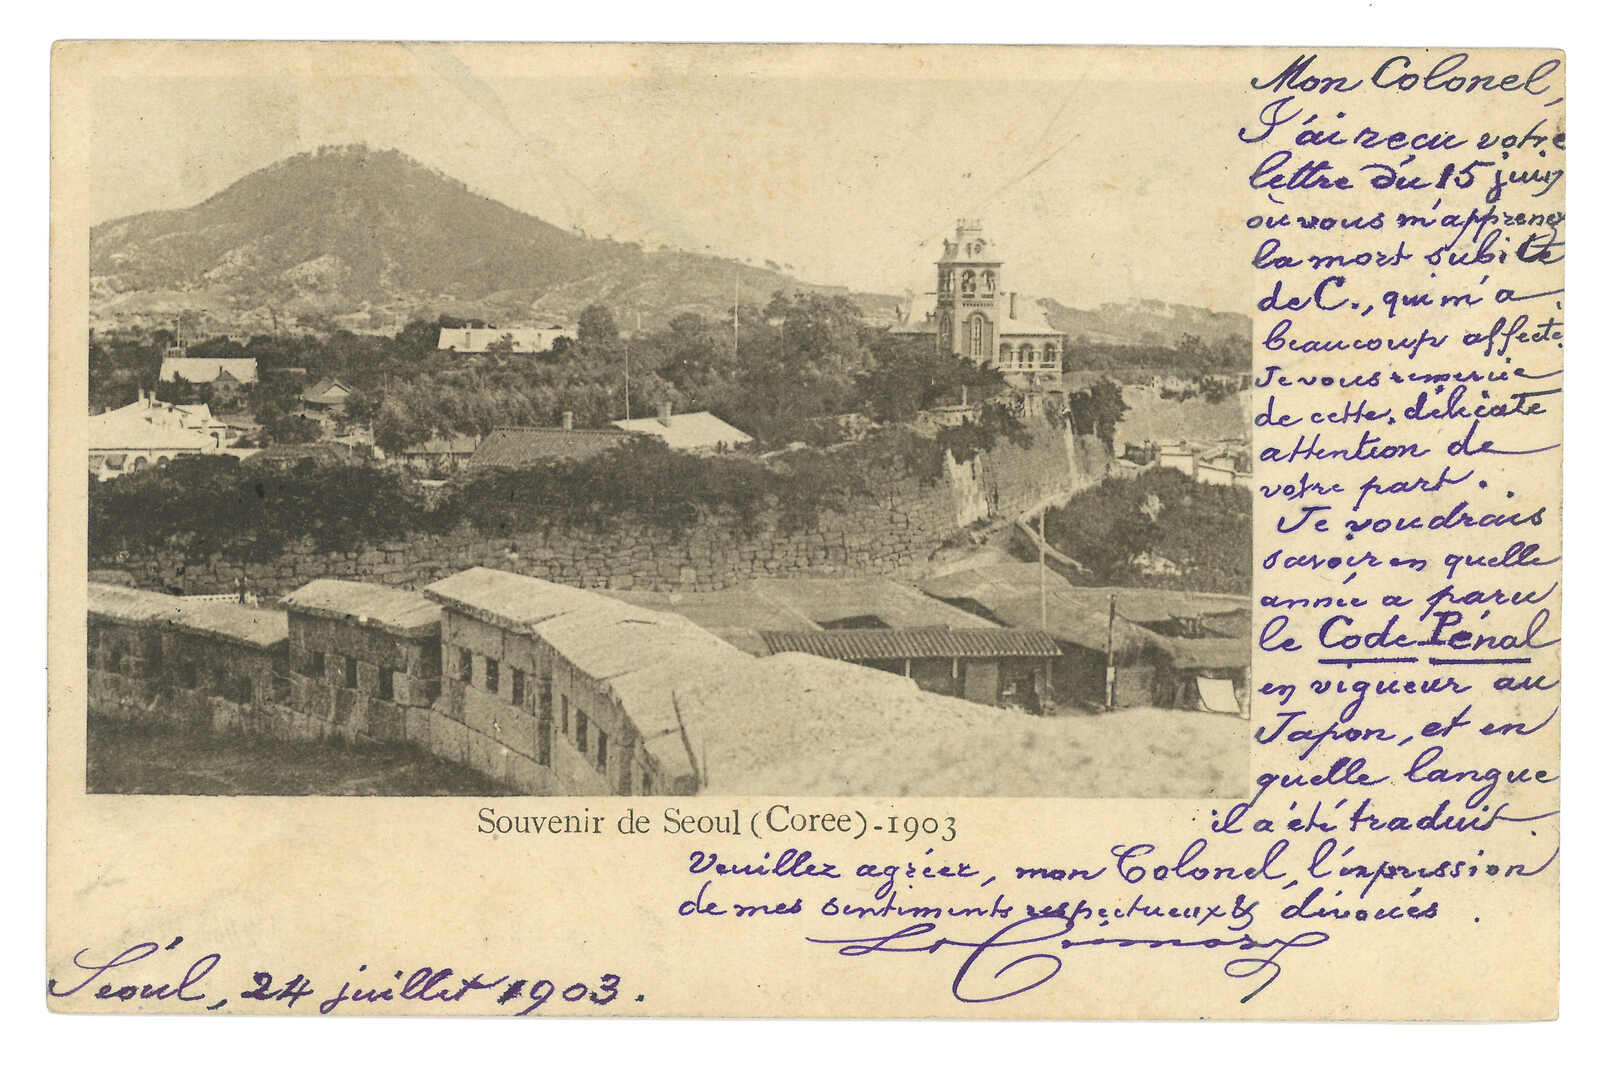 Mon Colonel,
J'ai reçu votre
lettre du 15 juin
où vous m'apprenez
la mort subite
de C., qui m'a
beaucoup affecté.
Je vous remercie
de cette délicate
attention de
votre part.
Je voudrais
savoir en quelle
année a paru
le Code Pénal
en vigueur au
Japon, et en
quelle langue
il a été traduit.
Souvenir de Seoul (Coree)-1903
Veuillez agréer, mon Colonel, l'expression
de mes sentiments respectueux & dévoués.
Séoul, 24 juillet 1903.